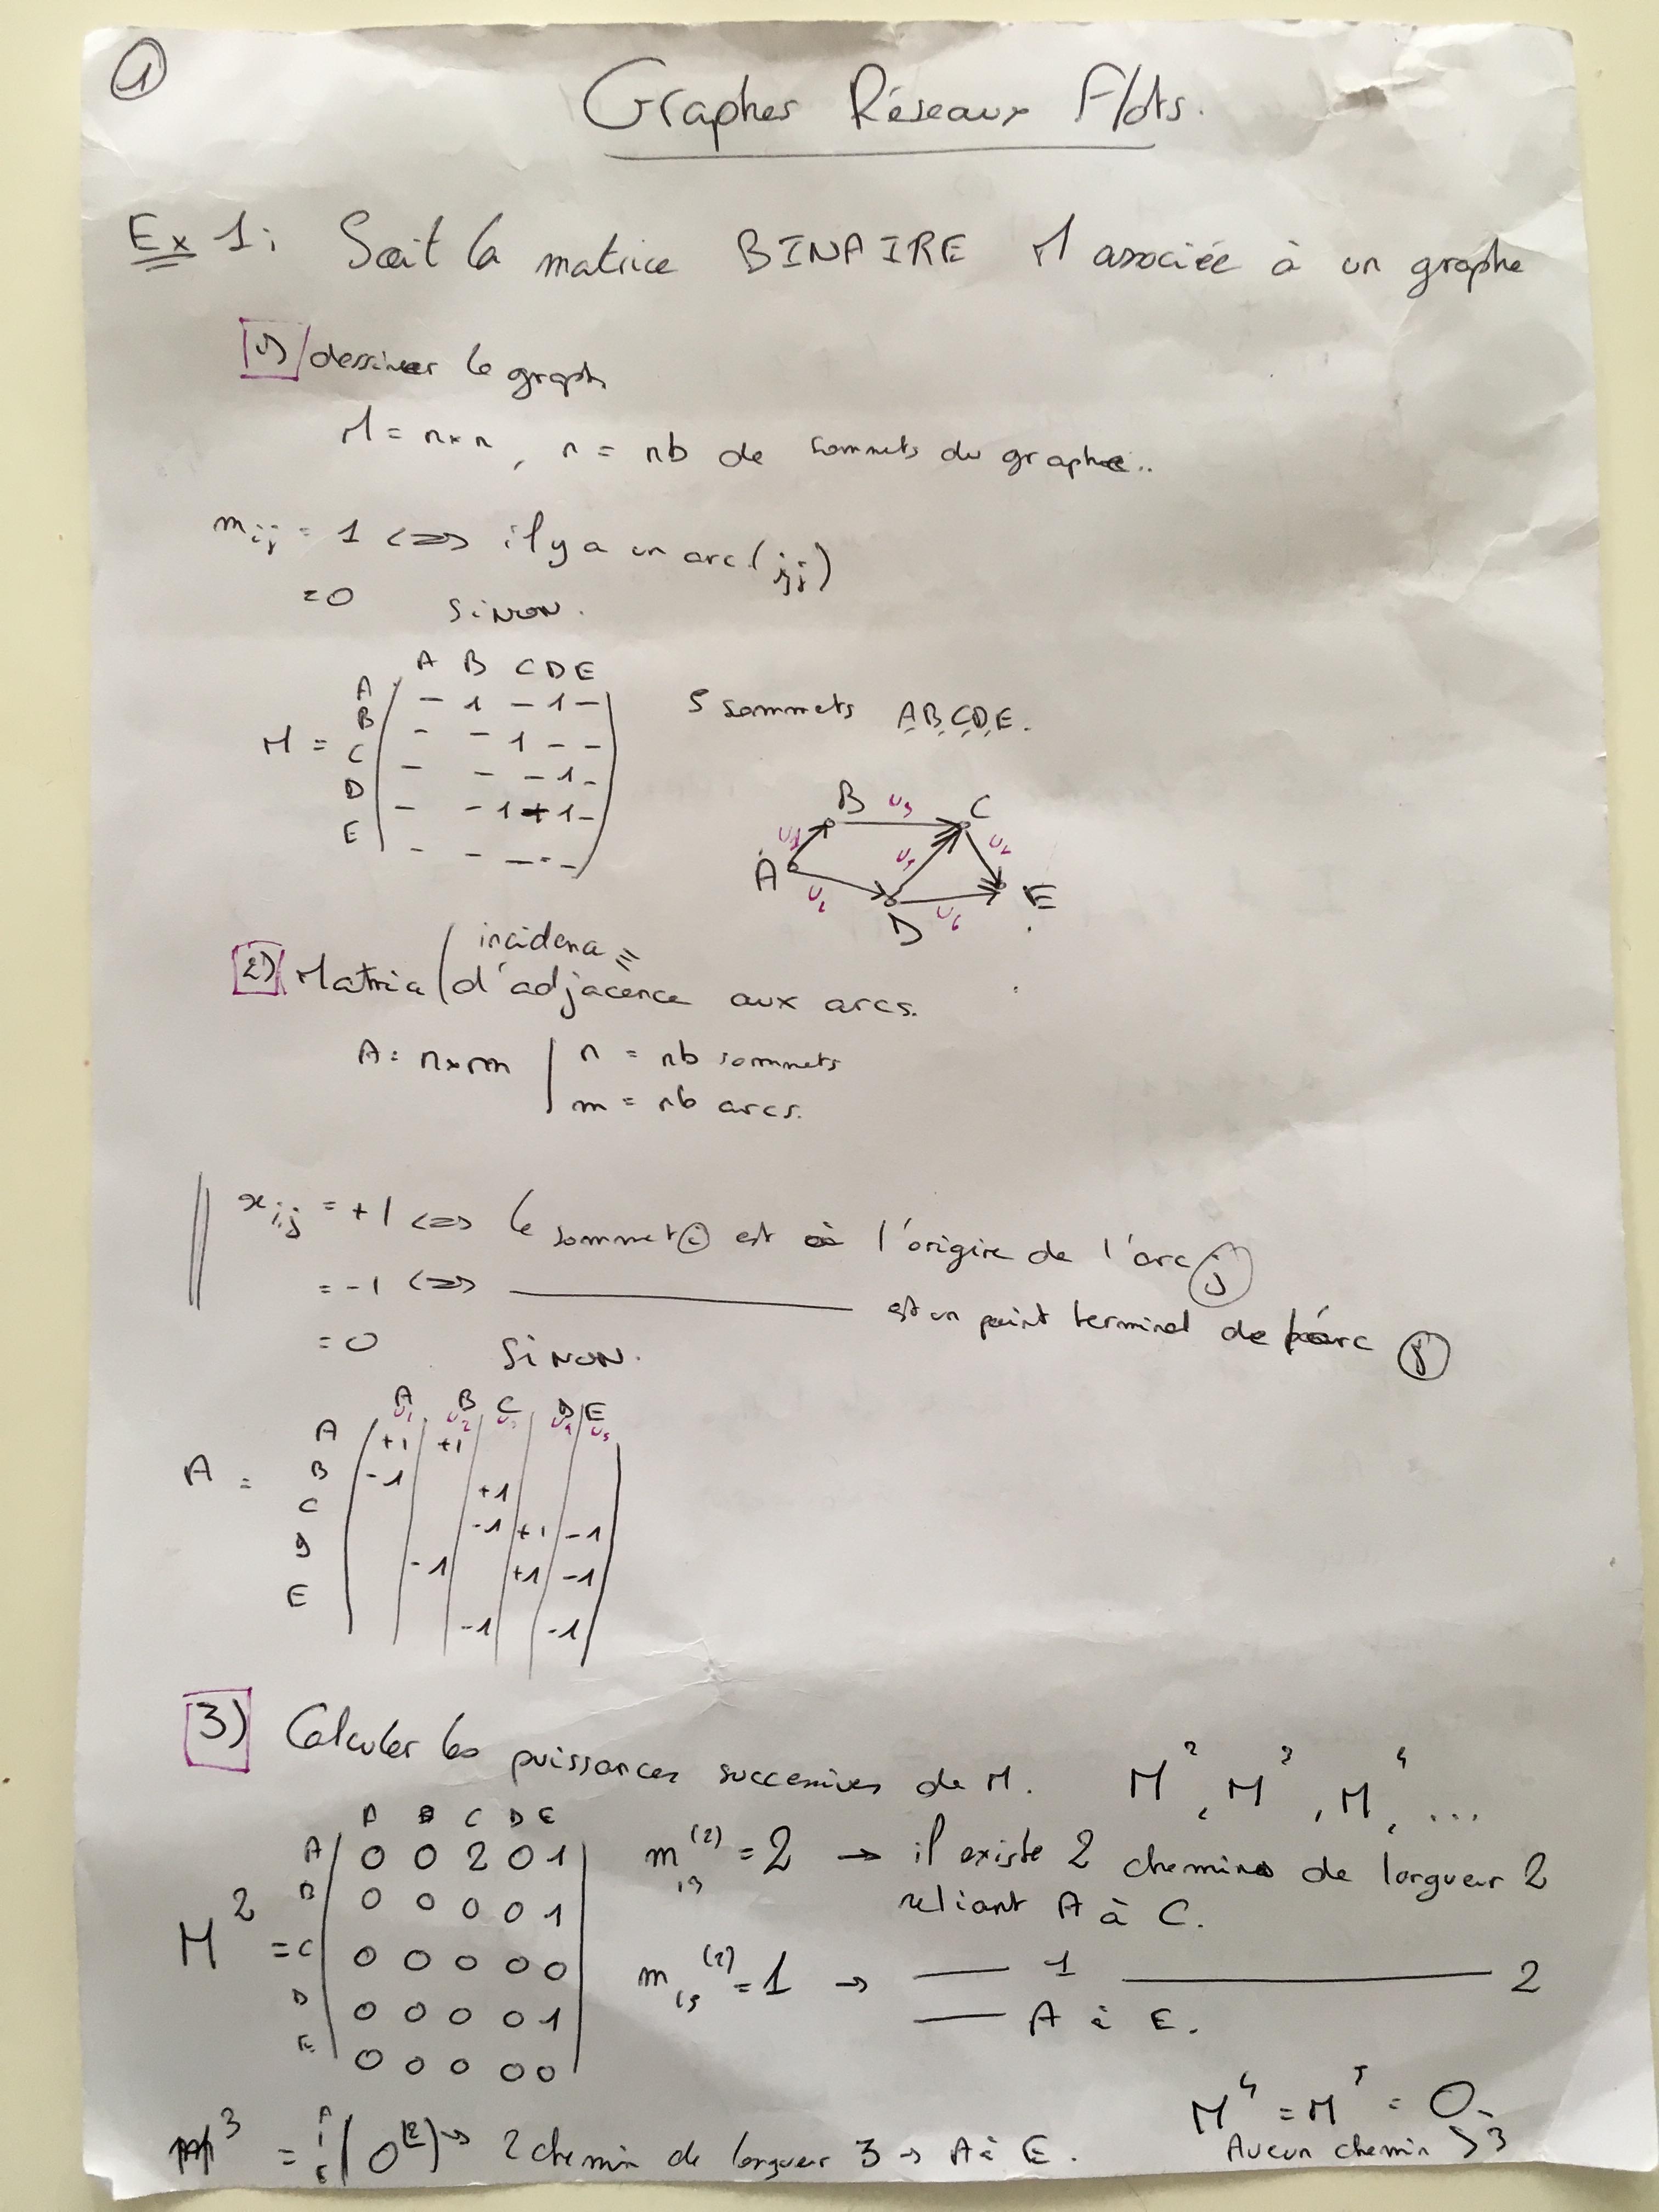 1
Graphes Réseaux Flots.
Ex 1: Soit la matrice BINAIRE M associée à un graphe
1) dessiner le graph
M = n×n, n = nb de sommets du graphe..
mij = 1 <=> il y a un arc (i,j)
=0 SINON.
A B C D E
A - 1 - 1 -
B - - 1 - -
M = C - - - 1 -
D - - 1 1 -
E - - - - -
5 sommets A,B,C,D,E.
B U3 C
U1 U5
A U2 D U6 E
2) Matrice (incidence =
d'adjacence aux arcs.
A: n×m | n = nb sommets
m = nb arcs.
xi,j = +1 <=> le sommet i est à l'origine de l'arc j
= -1 <=> ——— est un point terminal de l'arc j
= 0 SINON.
A B C D E
U1 U2 U3 U4 U5
A +1 +1
A = B -1 +1
C -1 +1 -1
D -1 +1 -1
E -1 -1
3) Calculer les puissances successives de M. M2, M3, M4, ...
A B C D E
A 0 0 2 0 1
B 0 0 0 0 1
M2 = C 0 0 0 0 0
D 0 0 0 0 1
E 0 0 0 0 0
m13(2) = 2 → il existe 2 chemins de longueur 2
reliant A à C.
m15(2) = 1 → —— 1 ——— 2
—— A à E.
M3 = A E ( 0 2 ) → 2 chemin de longueur 3 → A à E.
M4 = M5 = 0
Aucun chemin > 3